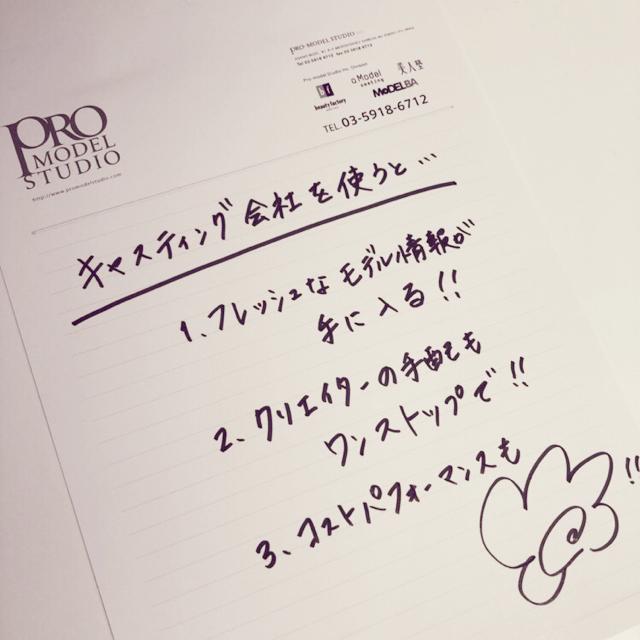 PRO-MODEL STUDIO
Pro-model Studio Inc. Division
beauty factory
a.Model
casting
美人塾
MoDELBA
TEL.03-5918-6712
PRO
MODEL
STUDIO
http://www.promodelstudio.com
キャスティング会社を使うと…
1、フレッシュなモデル情報が
手に入る!!
2、クリエイターの手配も
ワンストップで!!
3、コストパフォーマンスも
!!